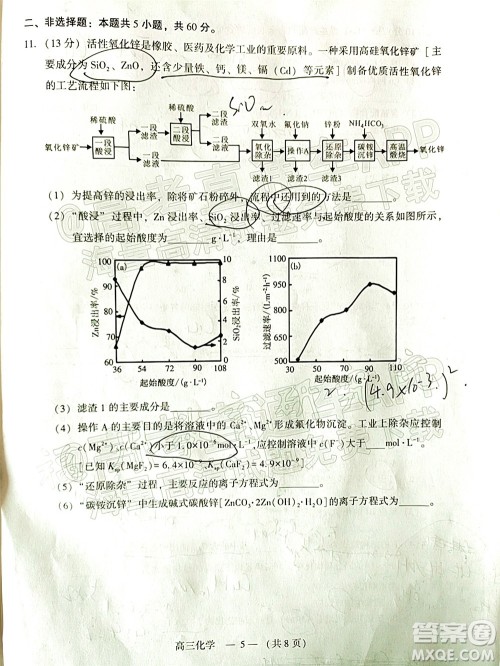 二、非选择题：本题共 5 小题，共 60 分。
11.（13 分）活性氧化锌是橡胶、医药及化学工业的重要原料。一种采用高硅氧化锌矿［主
要成分为 SiO₂、ZnO，还含少量铁、钙、镁、镉（Cd）等元素］制备优质活性氧化锌
的工艺流程如下图：
稀硫酸 稀硫酸 双氧水 氟化钠 锌粉 NH₄HCO₃
氧化锌矿 一段酸浸 一段滤渣 二段酸浸 二段滤液 氧化除杂 操作A 还原除杂 碳铵沉锌 高温煅烧 氧化锌
一段滤液 二段滤渣 滤渣1 滤渣2
（1）为提高锌的浸出率，除将矿石粉碎外，流程中还用到的方法是
（2）“酸浸”过程中，Zn 浸出率、SiO₂ 浸出率、过滤速率与起始酸度的关系如图所示，
宜选择的起始酸度为 g·L⁻¹，理由是 。
(a)
Zn浸出率/%
100
95
90
85
80
75
70
65
60
36 54 72 90 108
10
8
6
4
2
0
SiO₂浸出率/%
起始酸度/(g·L⁻¹)
(b)
过滤速率/(L·m⁻²·h⁻¹)
1100
1000
900
800
700
600
500
30 50 70 90 110
起始酸度/(g·L⁻¹)
（3）滤渣 1 的主要成分是 。
（4）操作 A 的目的是将溶液中的 Ca²⁺、Mg²⁺ 形成氟化物沉淀。工业上除杂应控制
c(Mg²⁺)、c(Ca²⁺)小于 1.0×10⁻⁶mol·L⁻¹，应控制溶液中 c(F⁻)大于 mol·L⁻¹。
［已知 Ksp(MgF₂)=6.4×10⁻⁹、Ksp(CaF₂)=4.8×10⁻⁹］
（5）“还原除杂”过程，主要反应的离子方程式为 。
（6）“碳铵沉锌”中生成碱式碳酸锌［ZnCO₃·2Zn(OH)₂·H₂O］的离子方程式为 。
高三化学 — 5 —（共 8 页）
答案圈